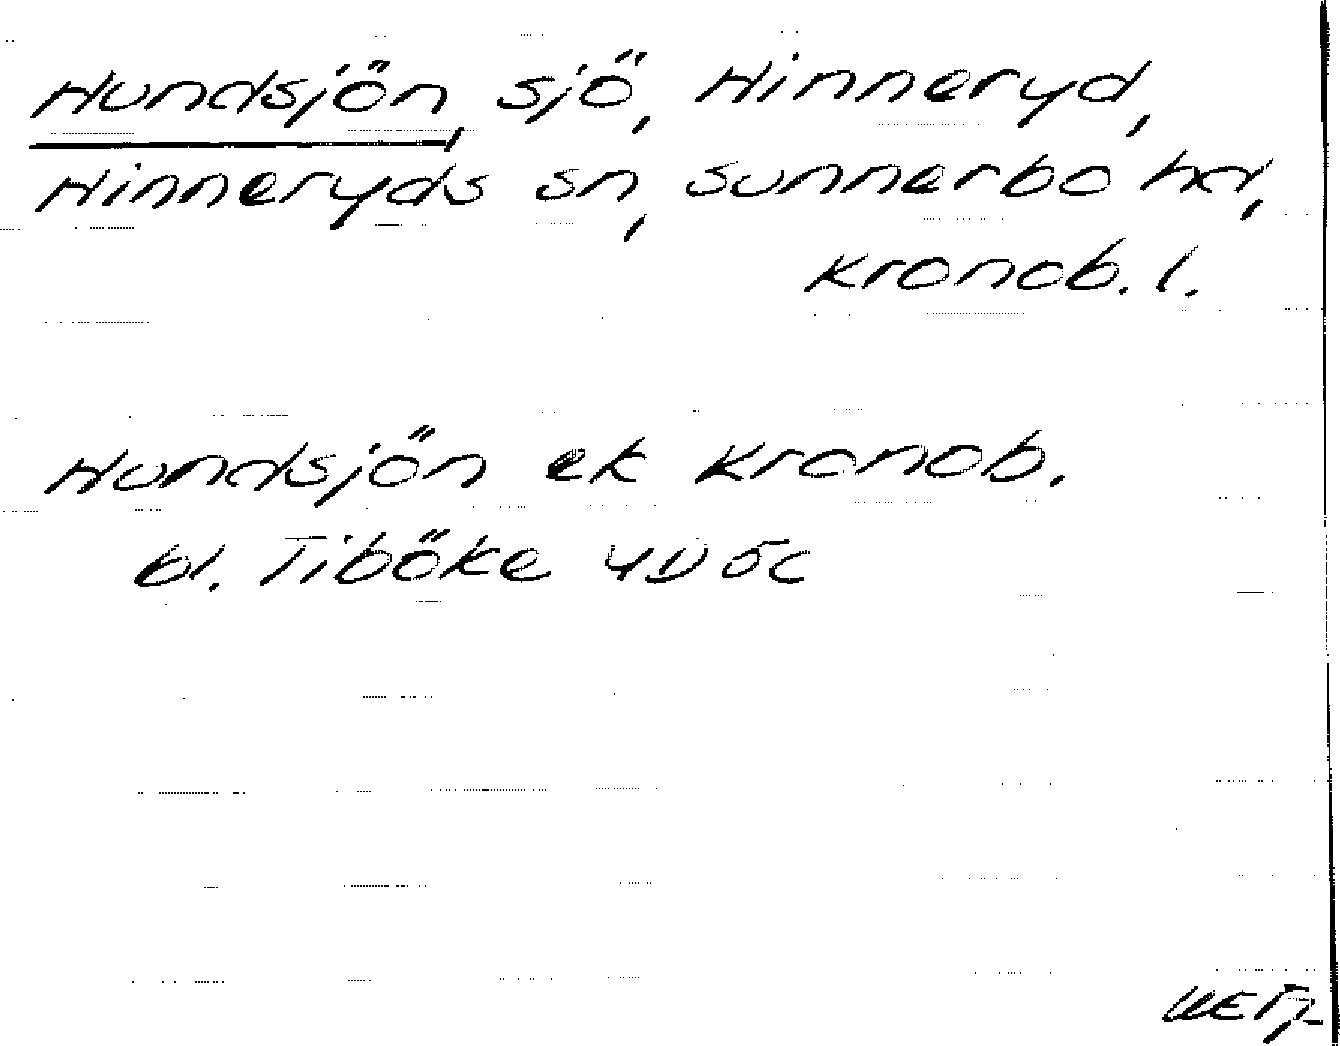 Hundsjön, sjö, Hinneryd,
Hinneryds sn, Sunnerbo hd,
Kronob. l.
Hundsjön ek Kronob.
bl. Tiböke 4D 5c